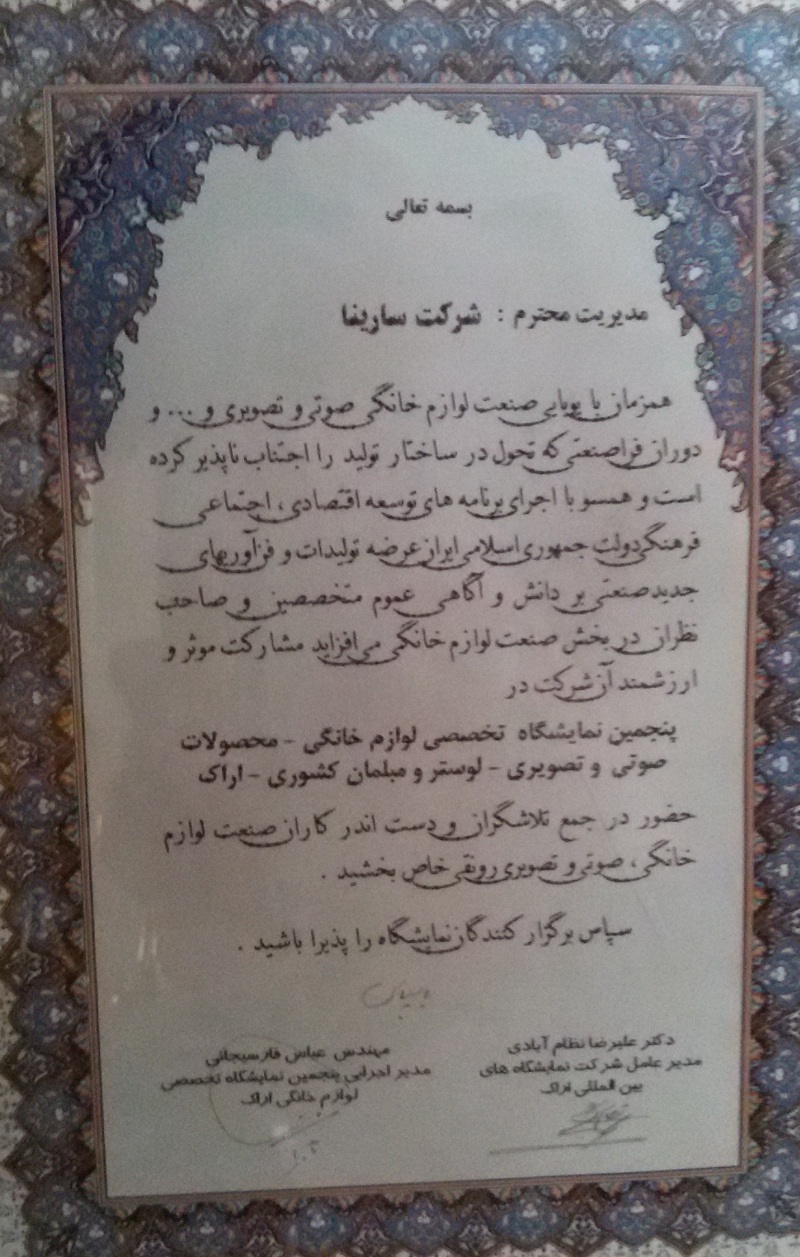 بسمه تعالی
مدیریت محترم : شرکت سارینا
همزمان با پویایی صنعت لوازم خانگی صوتی و تصویری و ... و
دوران فراصنعتی که تحول در ساختار تولید را اجتناب ناپذیر کرده
است و همسو با اجرای برنامه های توسعه اقتصادی ، اجتماعی
فرهنگی دولت جمهوری اسلامی ایران عرضه تولیدات و فن آوریهای
جدید صنعتی بر دانش و آگاهی عموم متخصصین و صاحب
نظران در بخش صنعت لوازم خانگی می افزاید مشارکت موثر و
ارزشمند آن شرکت در
پنجمین نمایشگاه تخصصی لوازم خانگی - محصولات
صوتی و تصویری - لوستر و مبلمان کشوری - اراک
حضور در جمع تلاشگران و دست اندر کاران صنعت لوازم
خانگی ، صوتی و تصویری رونقی خاص بخشید .
سپاس برگزار کنندگان نمایشگاه را پذیرا باشید .
با سپاس
دکتر علیرضا نظام آبادی
مدیر عامل شرکت نمایشگاه های
بین المللی اراک
مهندس عباس فارسیجانی
مدیر اجرایی پنجمین نمایشگاه تخصصی
لوازم خانگی اراک